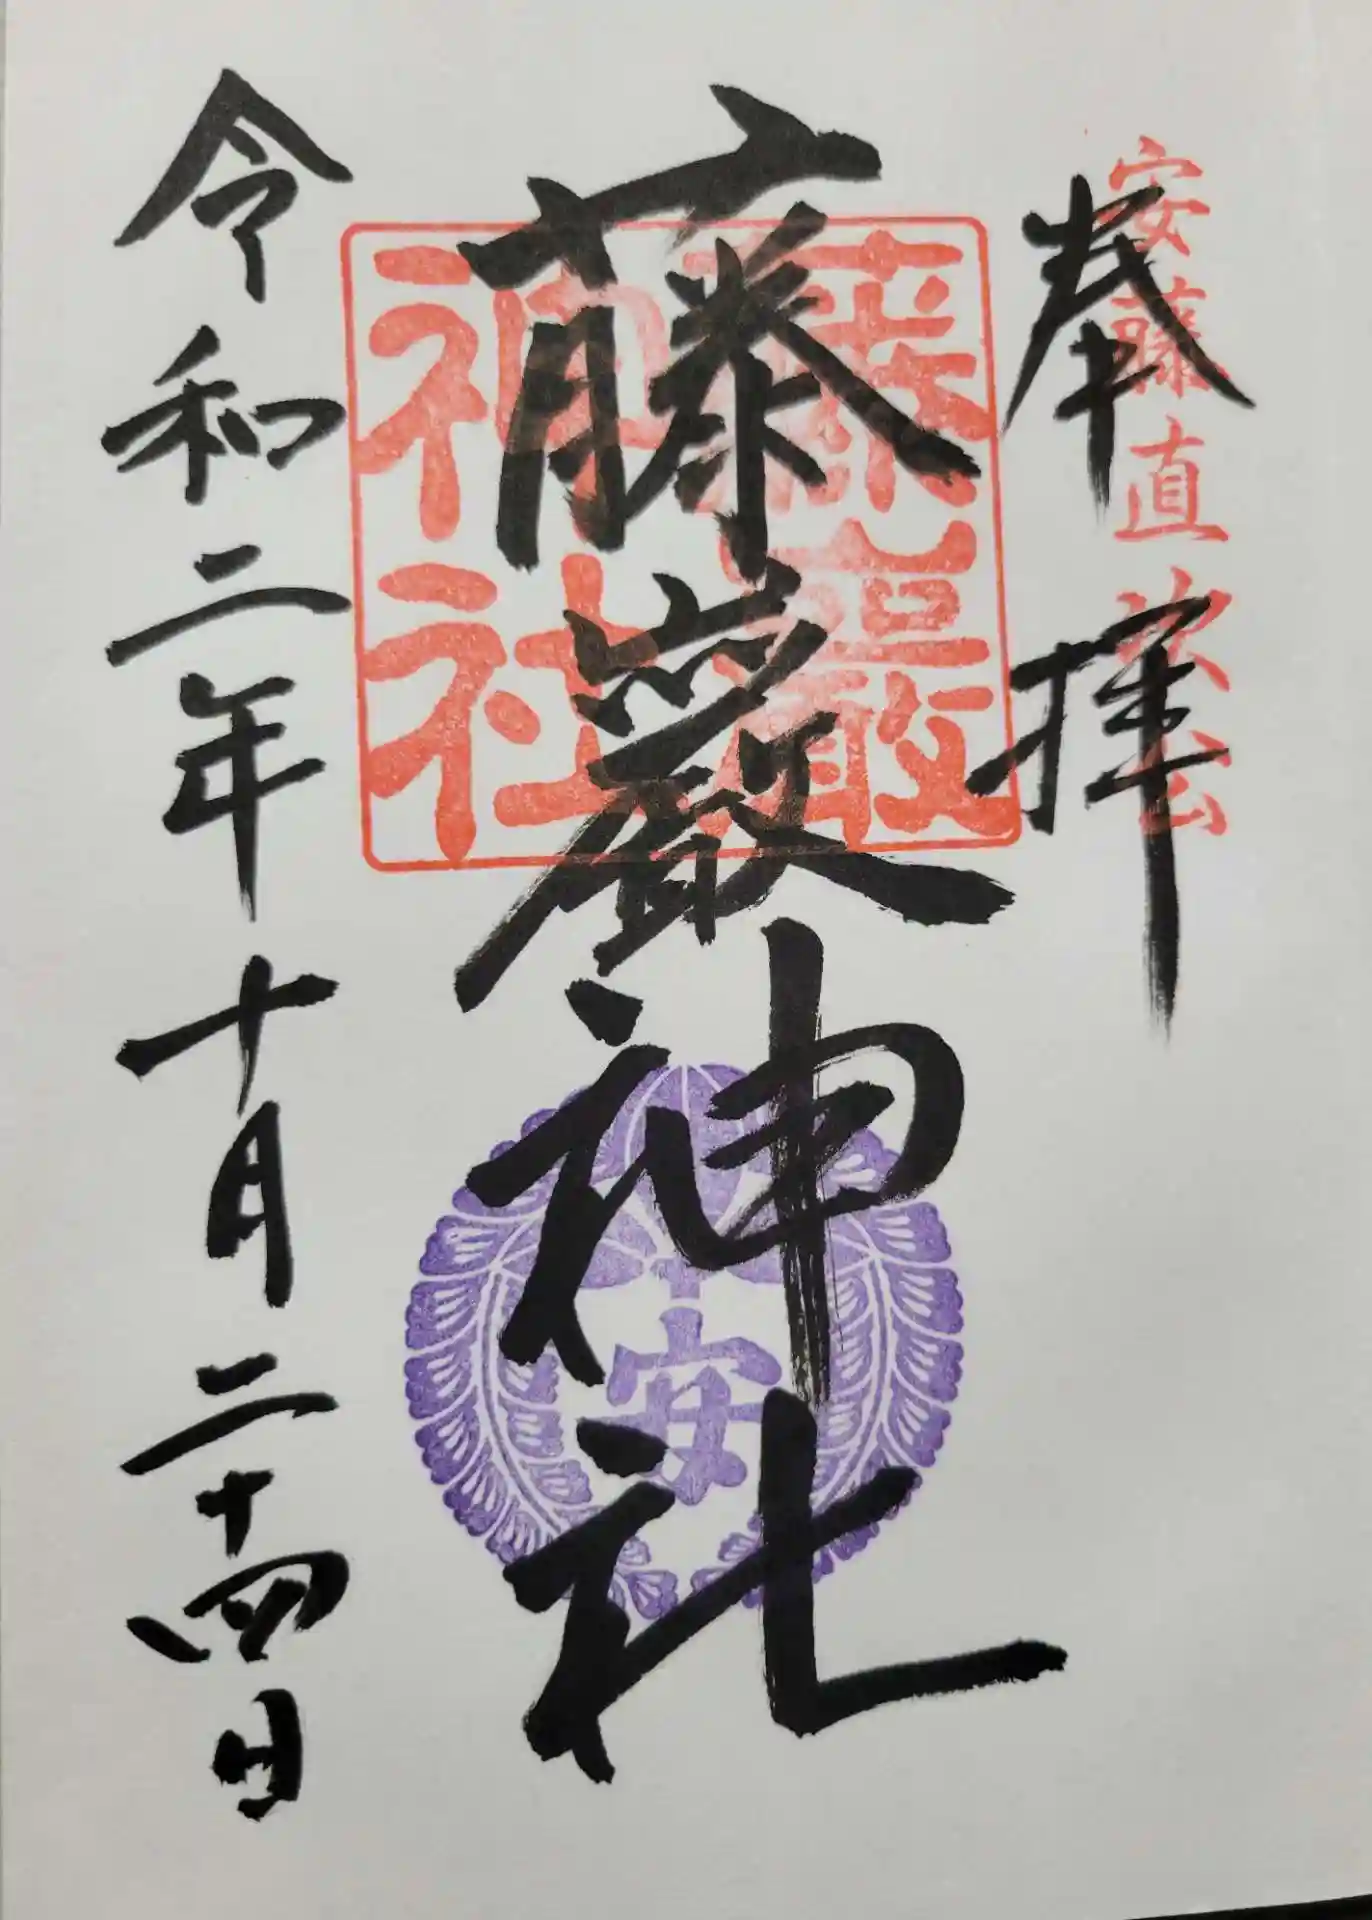 安藤直次公
奉拝
藤巖神社
藤巖
神社
安
令和二年十月二十四日